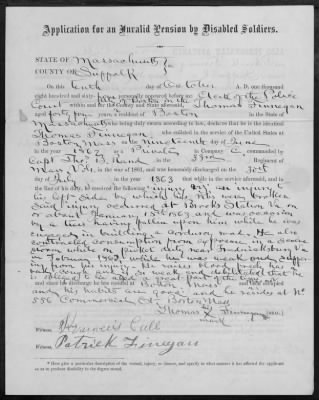 Application for an Invalid Pension by Disabled Soldiers.
STATE OF Massachusetts }
COUNTY OF Suffolk } ss
On this tenth day of October A. D. one thousand
eight hundred and sixty- personally appeared before me Clerk of the Police
Court within and for the County and State aforesaid Thomas Finnegan
aged forty four years, a resident of Boston in the State of
Massachusetts who being duly sworn according to law, declares that he is the identical
Thomas Finnegan who enlisted in the service of the United States at
Boston Mass on the Nineteenth day of June
in the year 1862 as Private in Company commanded by
Capt Thos B. Rand in the 33rd Regiment of
Mass Vols. in the war of 1861, and was honorably discharged on the 30th
day of July in the year 1863 that while in the service aforesaid, and in
the line of his duty, he received the following injury viz: an injury to
his left side by which ribs were broken
Said injury occurred at Brooks Station Va on
or about January 1863 and was occasion
by a tree having fallen upon him while he was
engaged in building a corduroy road. He also
contracted consumption from exposure in a severe
storm while on picket duty near Fredericksburg Va
in February 1863 while he was weak and suffering
from his injury. He raises blood freely has a
bad cough and is so weak and debilitated that he
is unable to be about a part of the time
and since his discharge he has resided at Boston Mass and been occupied
and his habits are good and he resides at No
556 Commercial St Boston Mass
his
Thomas X Finnegan
mark
Witness,
Witness, Patrick Finegan
* Here give a particular description of the wound, injury, or disease, and specify in what manner it has affected the applicant
so as to produce disability in the degree stated.